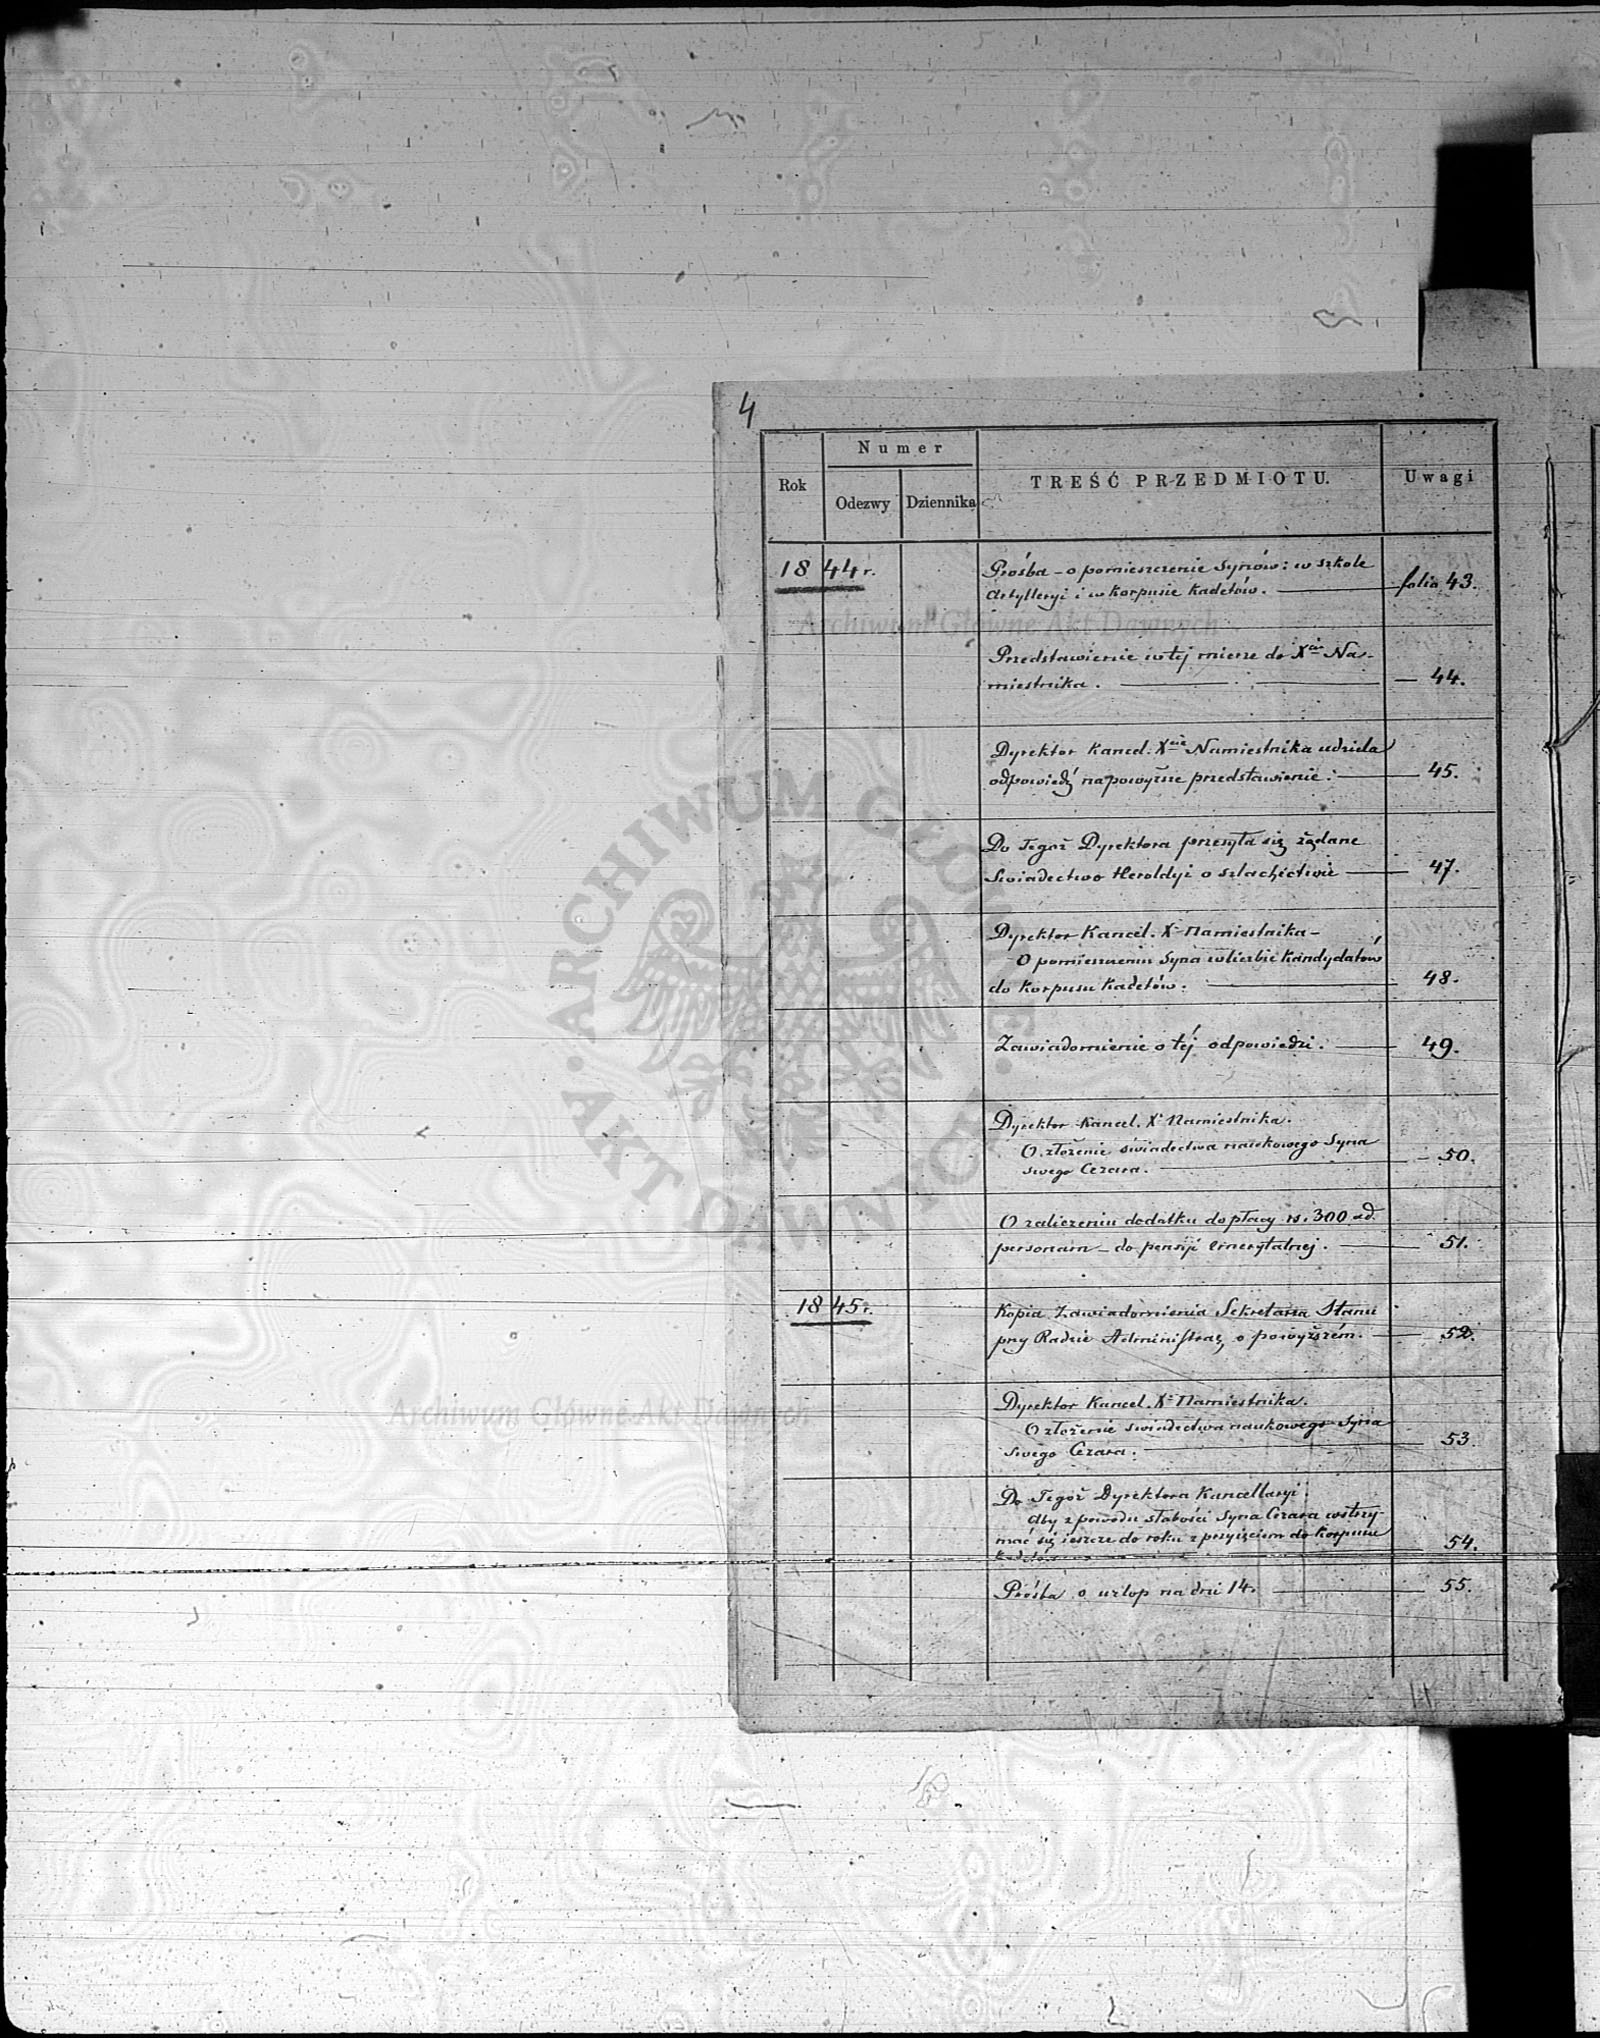 4
Numer
Rok
Odezwy
Dziennika
TREŚĆ PRZEDMIOTU.
Uwagi
1844 r.
Prośba – o pomieszczenie Synów: w szkole
Artylleryi i w Korpusie Kadetów. — folio 43.
Przedstawienie w tej mierze do Xcia Na-
miestnika. — 44.
Dyrektor Kancel. Xcia Namiestnika udziela
odpowiedź na powyższe przedstawienie: — 45.
Do Tegoż Dyrektora przesyła się żądane
Swiadectwo Heroldyi o szlachectwie — 47.
Dyrektor Kancel. X Namiestnika –
O pomieszczeniu Syna w liczbie Kandydatów
do Korpusu Kadetów. — 48.
Zawiadomienie o téj odpowiedzi. — 49.
Dyrektor Kancel. X Namiestnika.
O złożenie świadectwa naukowego Syna
swego Cezara. — 50.
O zaliczeniu dodatku do płacy rs. 300 ad
personam – do pensyi emerytalnej. — 51.
1845 r.
Kopia Zawiadomienia Sekretarza Stanu
przy Radzie Administrac. o powyższém. — 52.
Dyrektor Kancel. X Namiestnika.
O złożenie swiadectwa naukowego Syna
swego Cezara. — 53
Do Tegoż Dyrektora Kancellaryi.
Aby z powodu słabości Syna Cezara wstrzy-
mać się jeszcze do roku z przyjęciem do Korpusu
Kadetów — 54.
Prośba o urlop na dni 14. — 55.
Archiwum Główne Akt Dawnych
ARCHIWUM GŁÓWNE · AKT DAWNYCH ·
Archiwum Główne Akt Dawnych